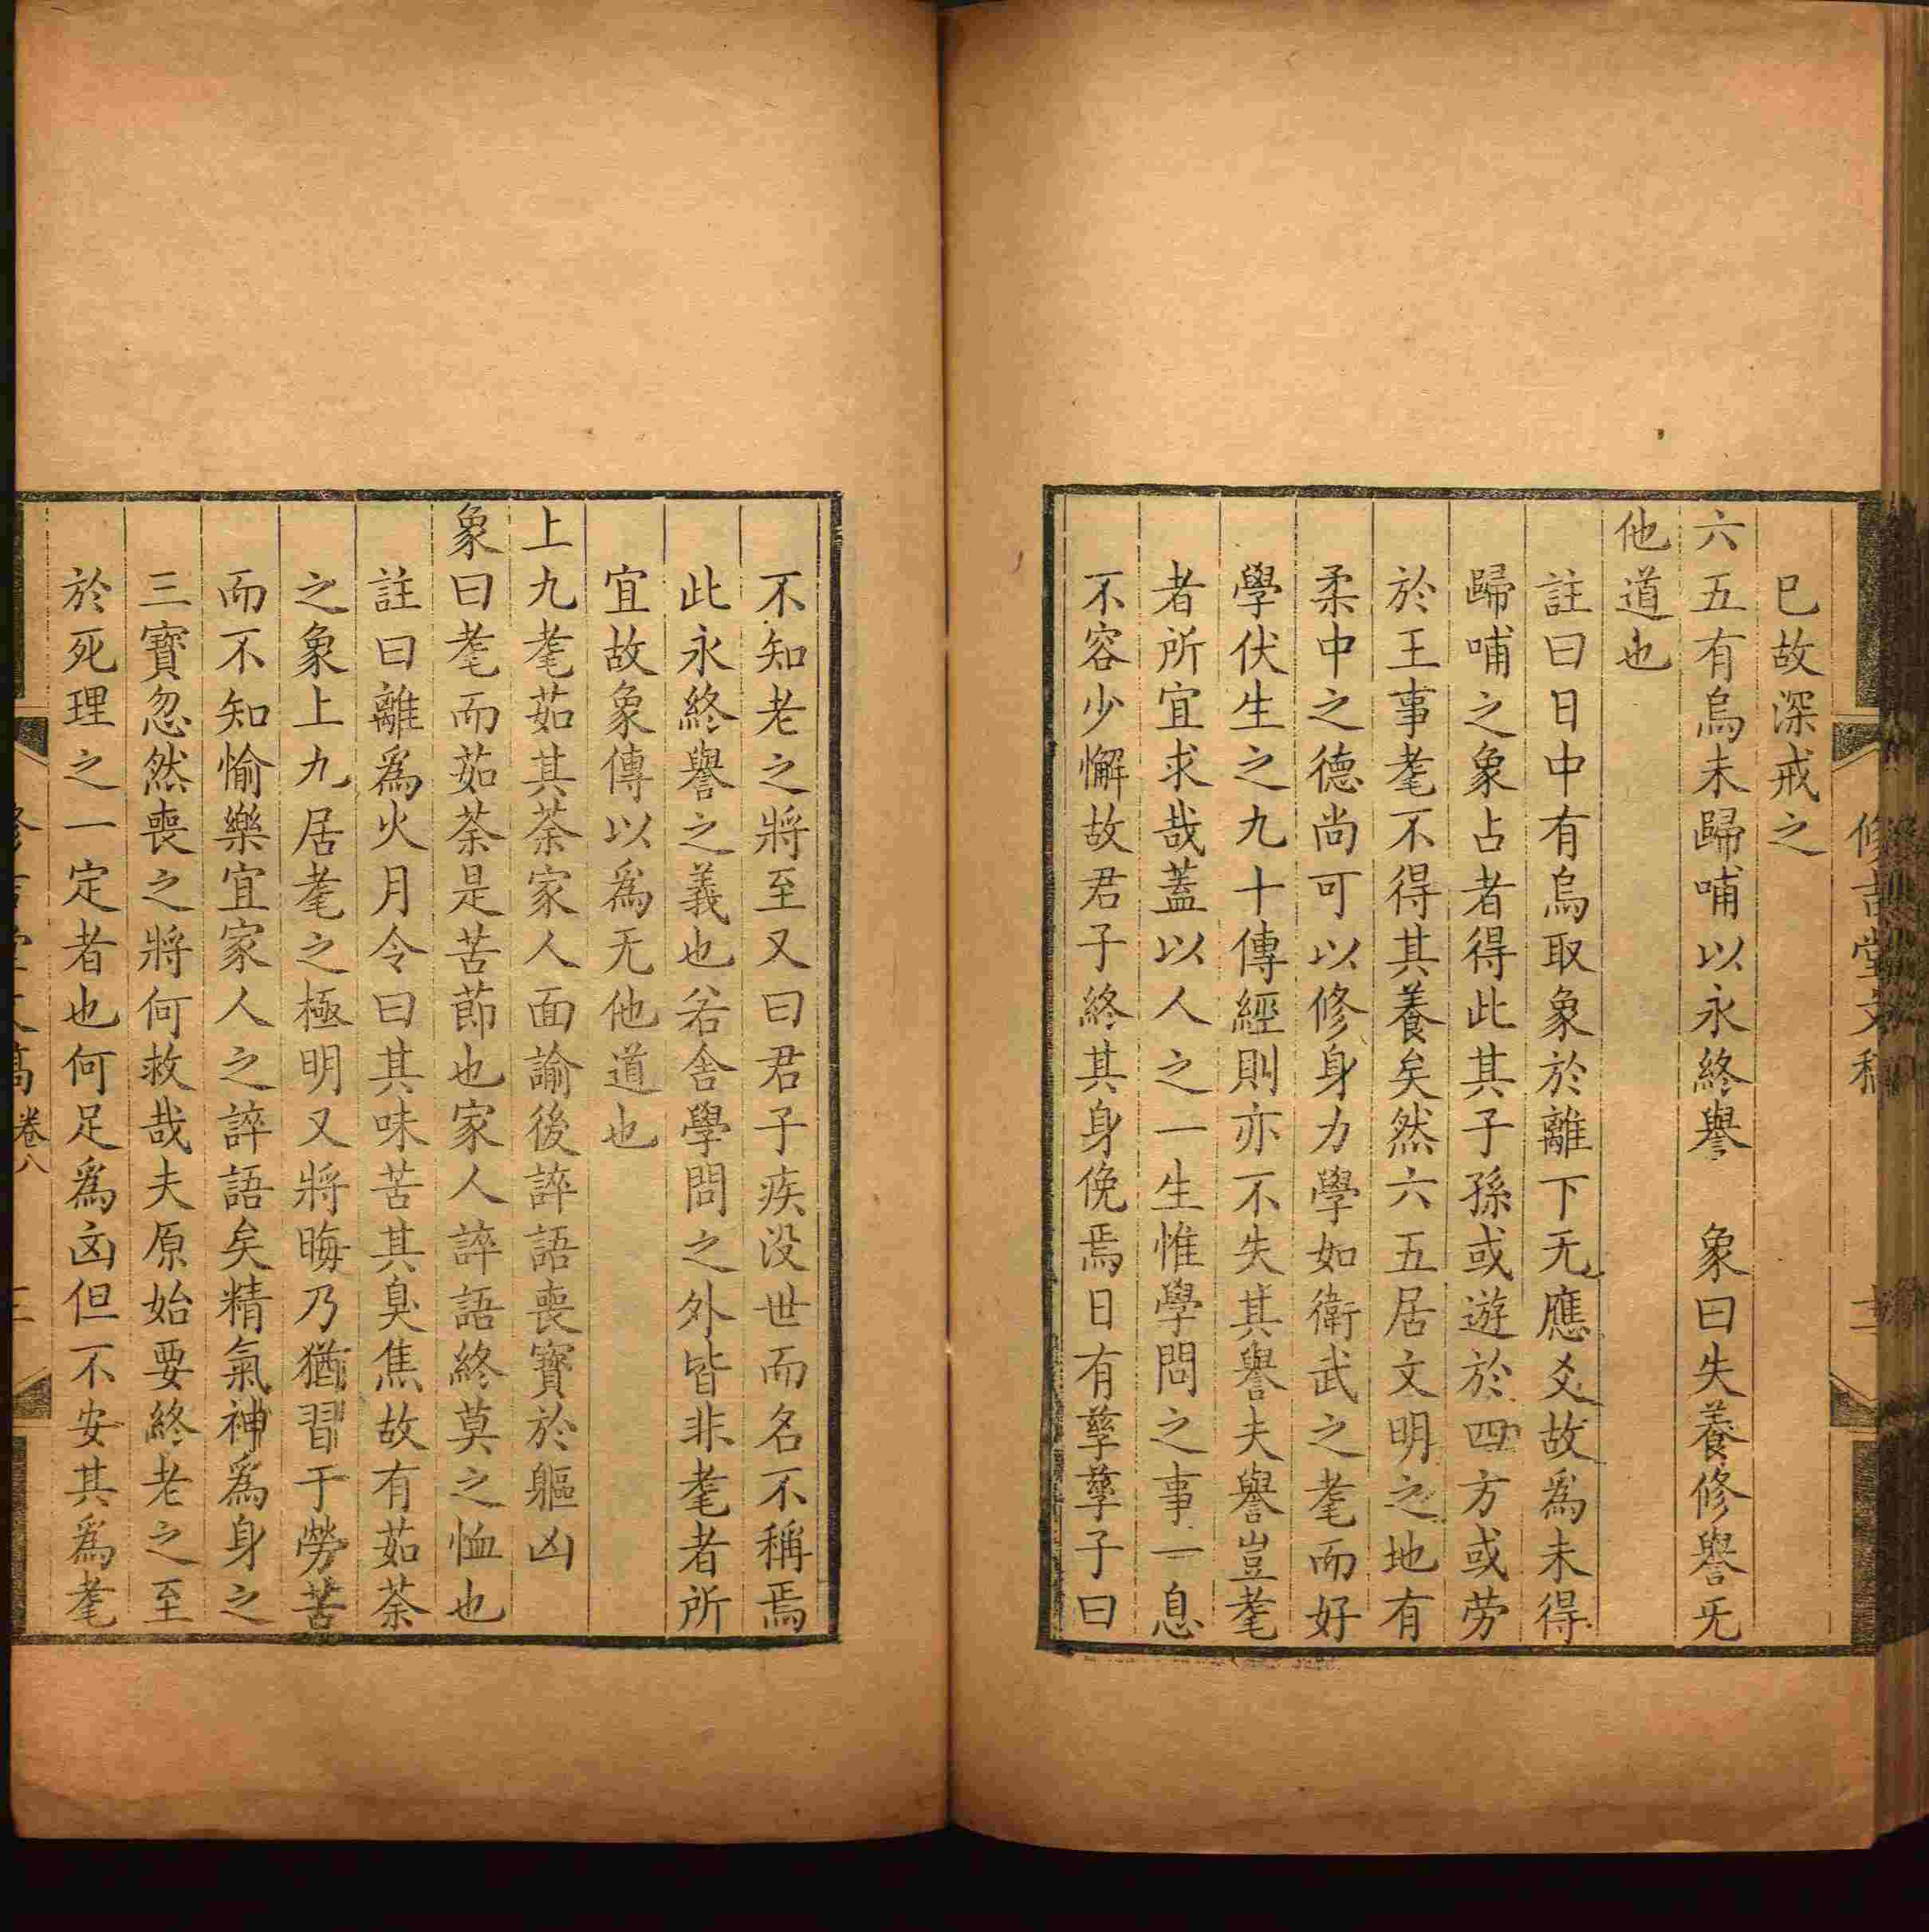 已故深戒之
六五有烏未歸哺以永終譽　象曰失養修譽无
他道也
註曰日中有烏取象於離下无應爻故爲未得
歸哺之象占者得此其子孫或遊於四方或劳
於王事耄不得其養矣然六五居文明之地有
柔中之德尚可以修身力學如衛武之耄而好
學伏生之九十傳經則亦不失其譽夫譽豈耄
者所宜求哉蓋以人之一生惟學問之事一息
不容少懈故君子終其身俛焉日有孳孳子曰
不知老之將至又曰君子疾没世而名不稱焉
此永終譽之義也若舍學問之外皆非耄者所
宜故象傳以爲无他道也
上九耄茹其荼家人面諭後誶語喪寳於軀凶
象曰耄而茹荼是苦節也家人誶語終莫之恤也
註曰離爲火月令曰其味苦其臭焦故有茹荼
之象上九居耄之極明又將晦乃猶習于勞苦
而不知愉樂宜家人之誶語矣精氣神爲身之
三寳忽然喪之將何救哉夫原始要終老之至
於死理之一定者也何足爲凶但不安其爲耄
卷八